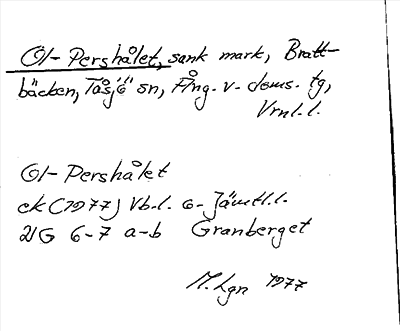 Ol-Pershålet, sank mark, Bratt-
bäcken, Tåsjö sn, Ång. v. doms. tg,
Vrnl.l.
Ol-Pershålet
ek (1977) Vb-l. o-Jämtl.l.
21G 6-7 a-b Granberget
M. Lgn 1977